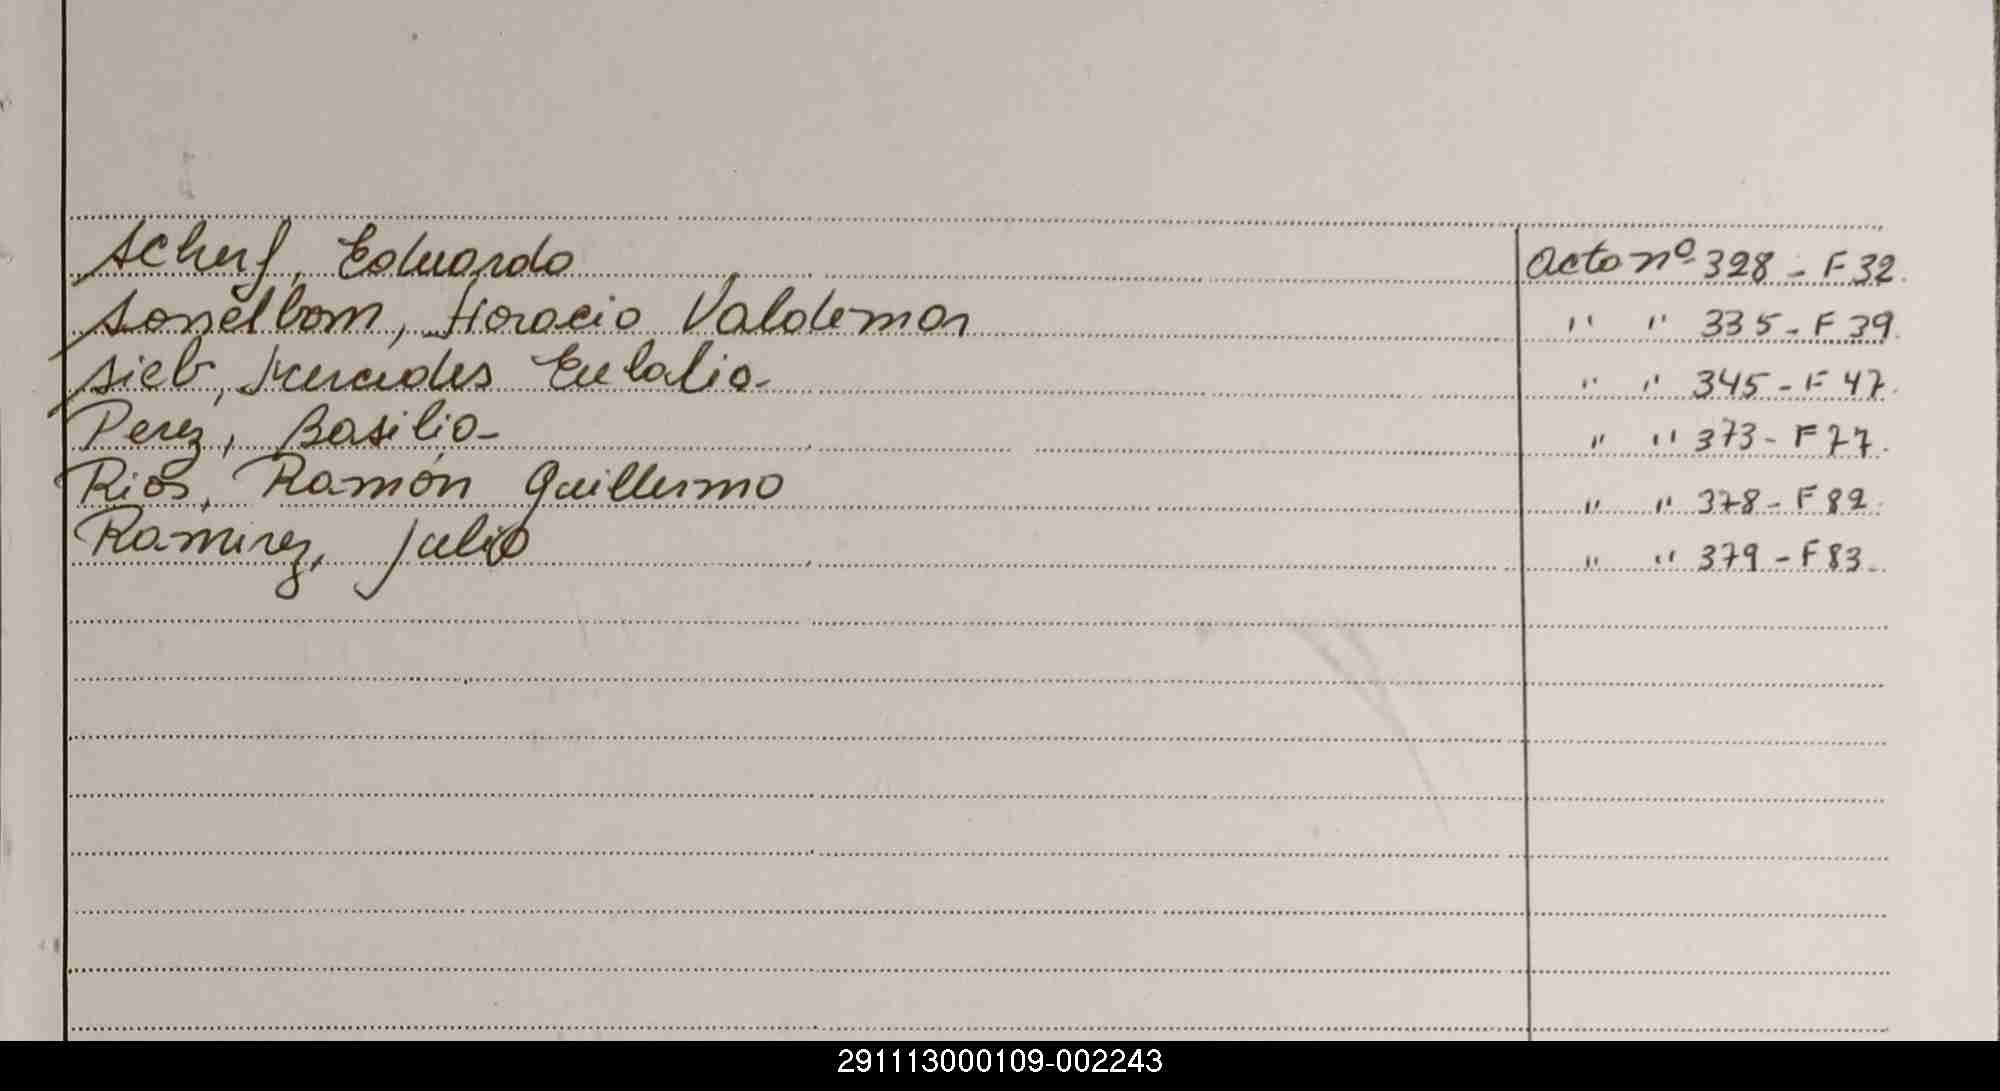 Scherf, Eduardo Acta nº 328 - F 32.
Sanelbom, Horacio Valdemar " " 335 - F 39.
Sieb, Mercedes Eulalia - " " 345 - F 47.
Perez, Basilio - " " 373 - F 77.
Rios, Ramón Guillermo " " 378 - F 82.
Ramirez, Julio " " 379 - F 83.
291113000109-002243